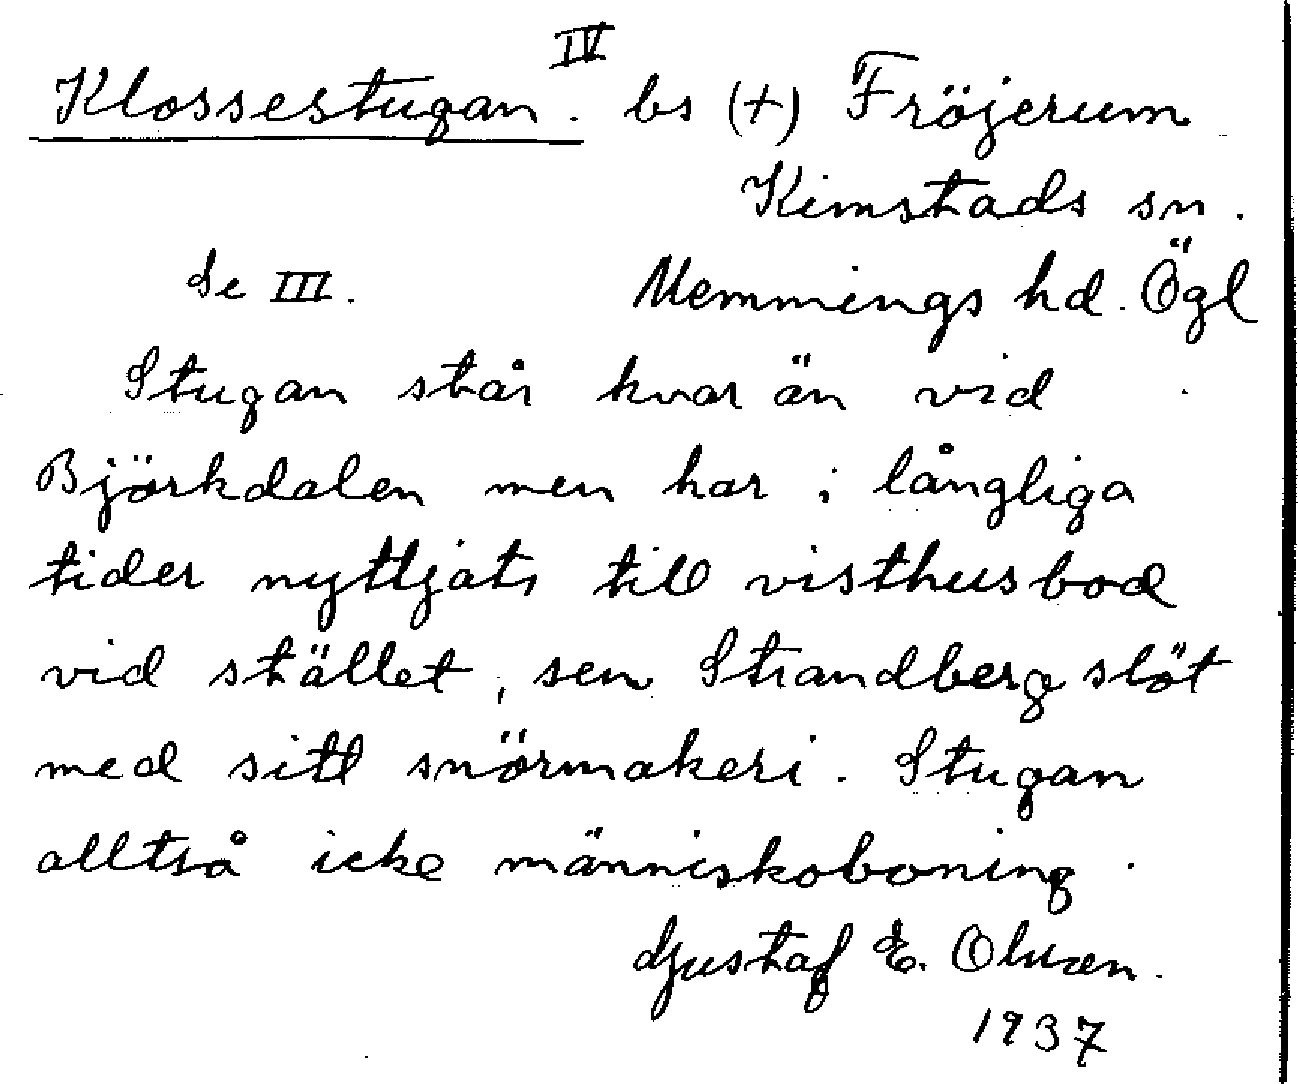 Klossestugan. IV bs (+) Fröjerum
Kimstads sn.
Se III. Memmings hd. Ögl
Stugan står kvar än vid
Björkdalen men har i långliga
tider nyttjats till visthusbod
vid stället, sen Strandberg slöt
med sitt snörmakeri. Stugan
alltså icke människoboning.
Gustaf E. Olsson.
1937